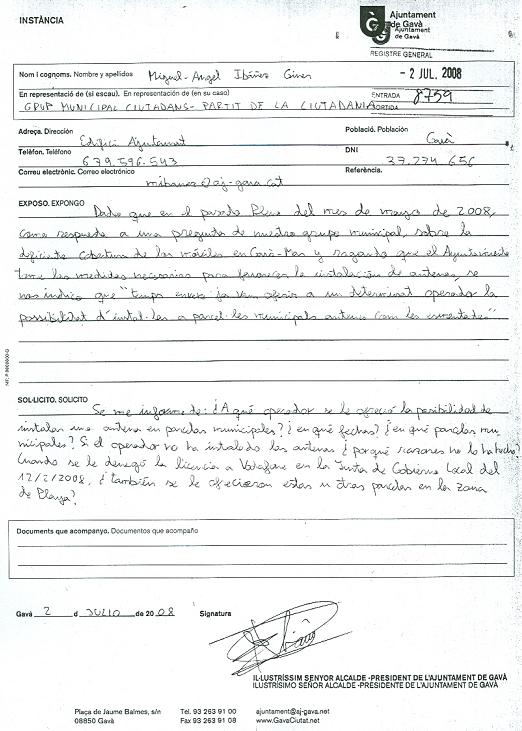 INSTÀNCIA
Ajuntament
de Gavà
Ajuntament
de Gavà
REGISTRE GENERAL
Nom i cognoms. Nombre y apellidos Miguel-Angel Ibáñez Giner
- 2 JUL. 2008
En representació de (si escau). En representación de (en su caso)
ENTRADA 8759
GRUP MUNICIPAL CIUTADANS- PARTIT DE LA CIUTADANIA
SORTIDA
Adreça. Dirección Edifici Ajuntament
Població. Población Gavà
Telèfon. Teléfono 679.596.543
DNI 37.774 656
Correu electrònic. Correo electrónico mibanez@aj-gava.cat
Referència.
EXPOSO. EXPONGO
Dado que en el pasado Pleno del mes de mayo de 2008,
como respuesta a una pregunta de nuestro grupo municipal, sobre la
deficiente cobertura de los móviles en Gavà-Mar y rogando que el Ayuntamiento
tome las medidas necesarias para favorecer la instalación de antenas, se
nos indicó que "temps enrera ja van oferir a un determinat operador la
possibilitat d'instal·lar a parcel·les municipals antenes com les esmentades"
SOL·LICITO. SOLICITO
Se me informe de: ¿A qué operador se le ofreció la posibilidad de
instalar una antena en parcelas municipales? ¿en qué fechas? ¿en qué parcelas mu
nicipales? Si el operador no ha instalado las antenas ¿porqué razones no lo ha hecho?
Cuando se le denegó la licencia a Vodafone en la Junta de Gobierno Local del
12/2/2008, ¿también se le ofrecieron estas u otras parcelas en la zona
de Playa?
Documents que acompanyo. Documentos que acompaño
Gavà 2 d JULIO de 2008 Signatura
IL·LUSTRÍSSIM SENYOR ALCALDE -PRESIDENT DE L'AJUNTAMENT DE GAVÀ
ILUSTRÍSIMO SEÑOR ALCALDE -PRESIDENTE DE L'AJUNTAMENT DE GAVÀ
Plaça de Jaume Balmes, s/n Tel. 93 263 91 00 ajuntament@aj-gava.net
08850 Gavà Fax 93 263 91 08 www.GavaCiutat.net